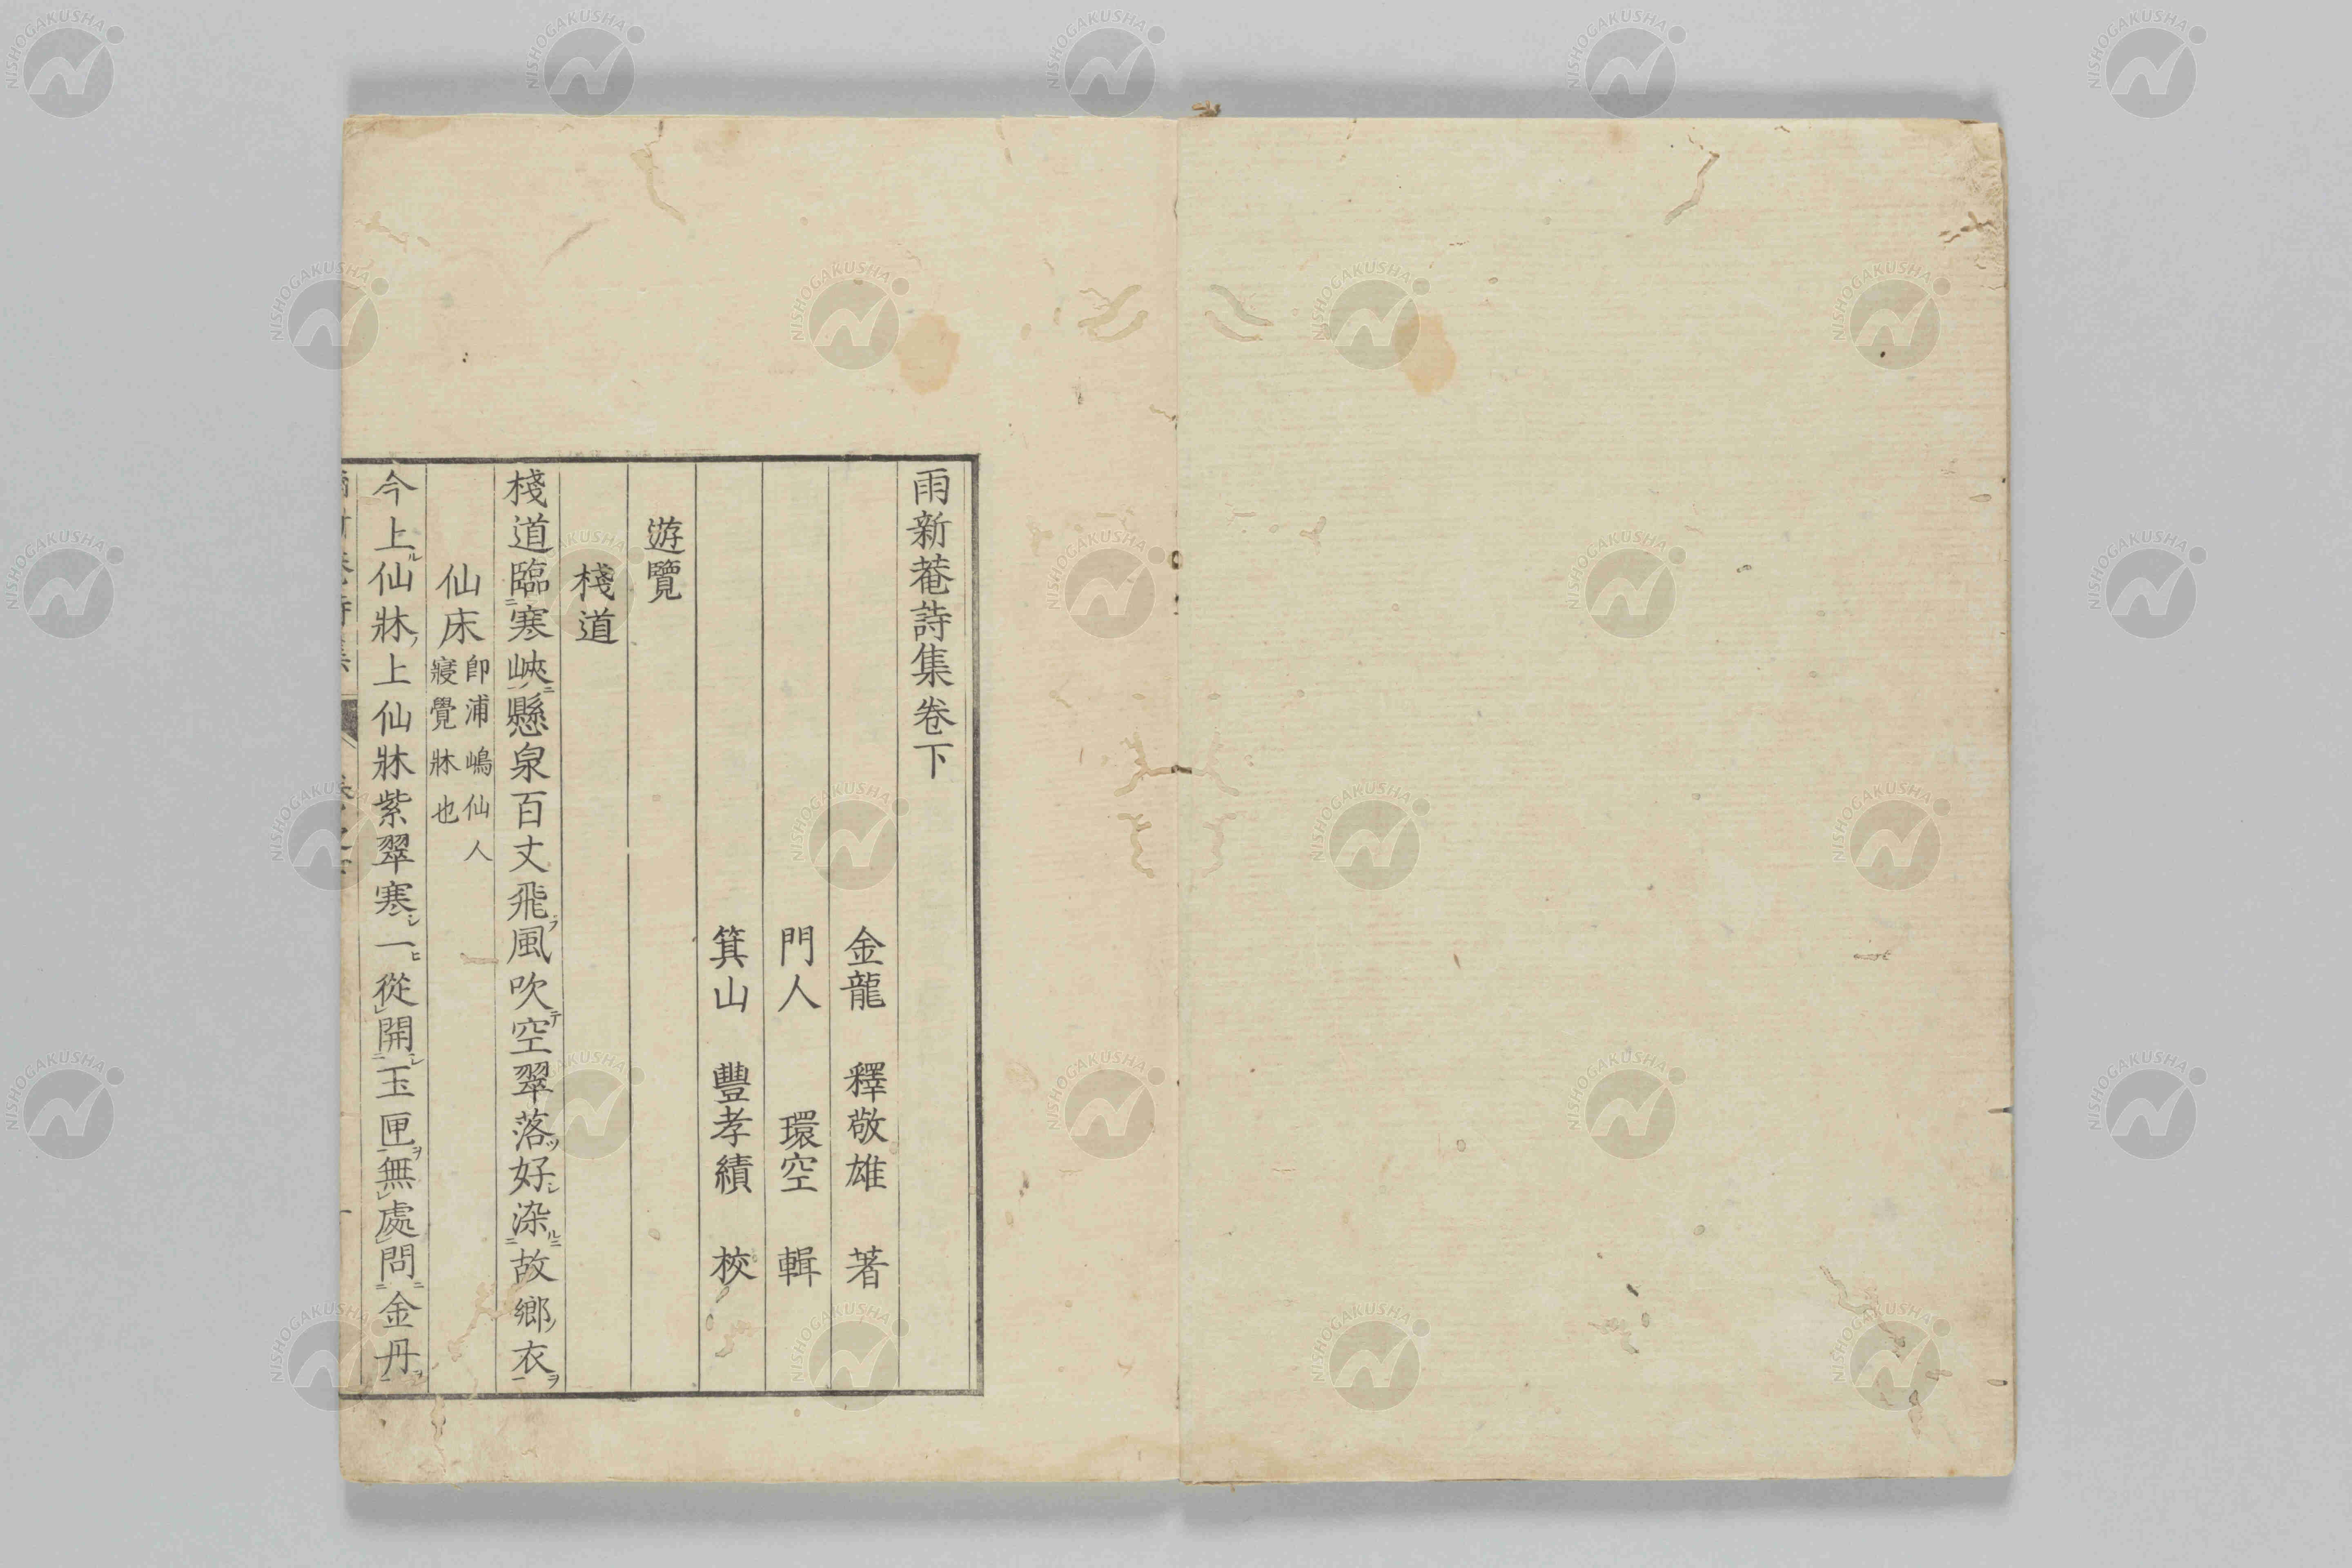 雨新菴詩集卷下
金龍 釋敬雄 著
門人 環空 輯
箕山 豐孝績 校
遊覽
棧道
棧道臨寒峽懸泉百丈飛風吹空翠落好染故鄉衣
仙床 卽浦嶋仙人
寢覺牀也
今上仙牀上仙牀紫翠寒一從開玉匣無處問金丹
NISHOGAKUSHA